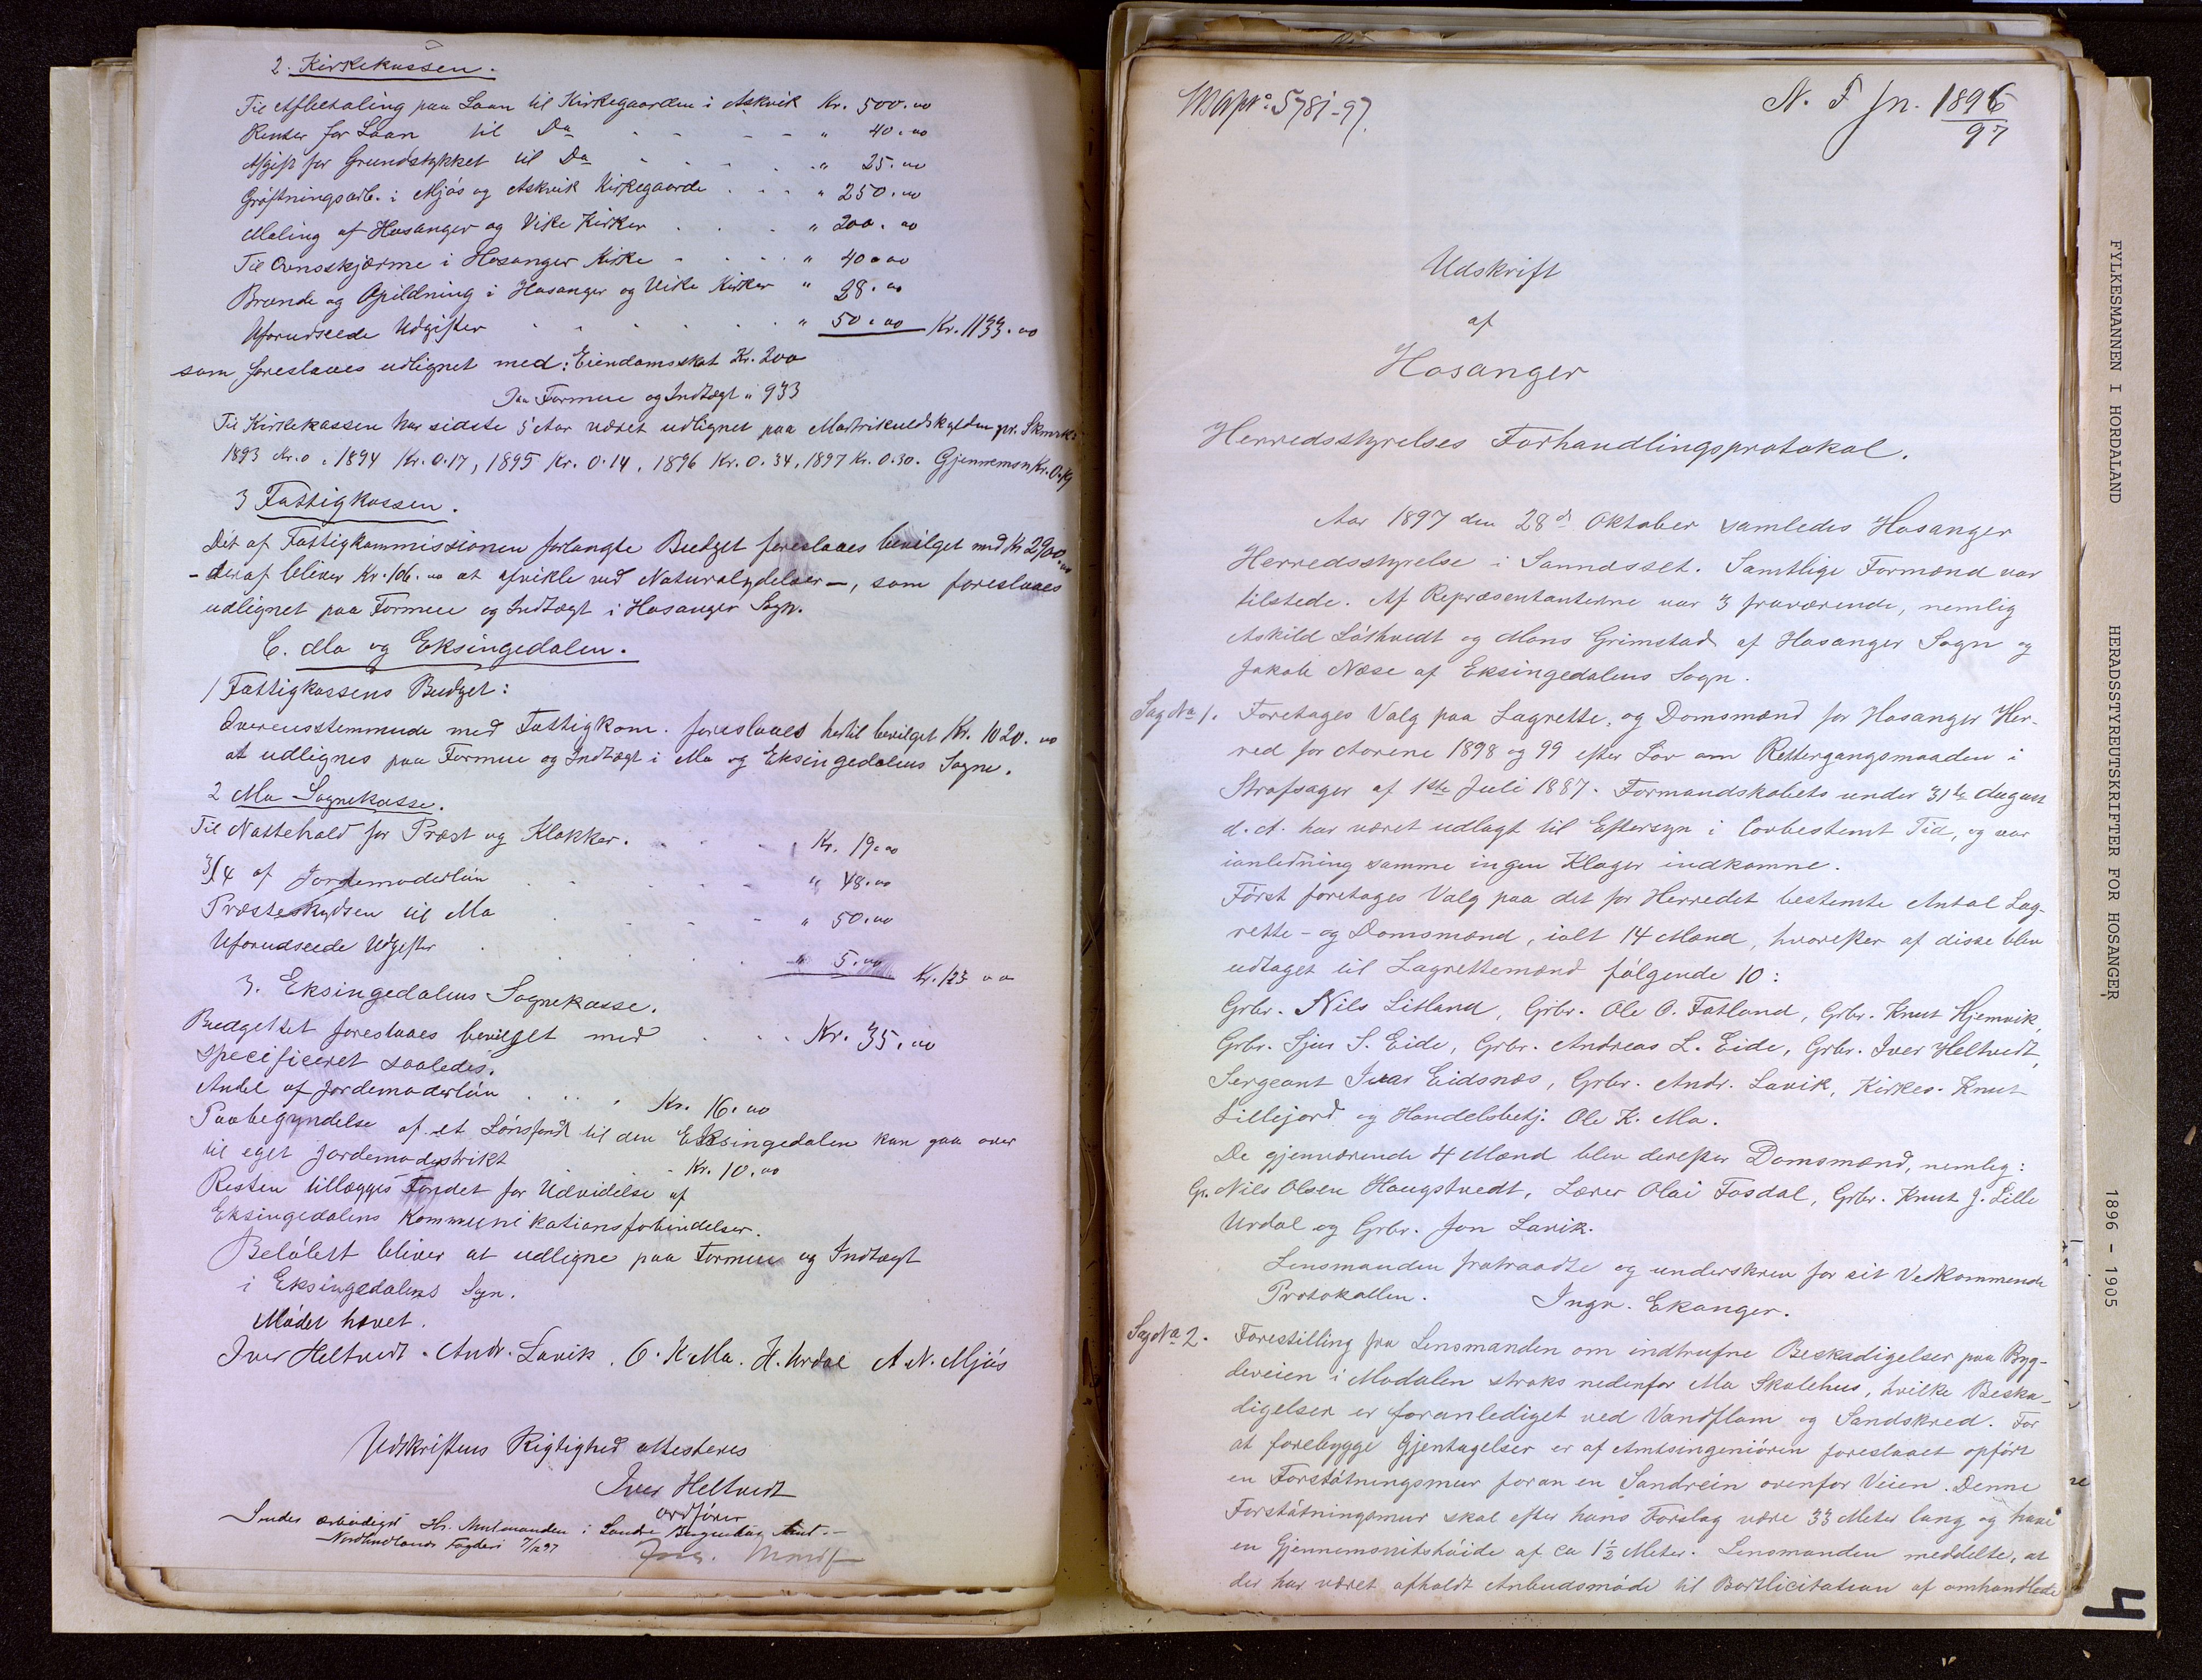 2. Kirkekassen.
Til Afbetaling paa Laan til Kirkegaarden i Askvik Kr. 500.00
Renter for Laan til Do - - - - " 40.00
Afgift for Grundstykket til Do - - - - " 25.00
Grøftningsarb. i Mjøs og Askvik Kirkegaarde . . . " 250.00
Maling af Hosanger og Vike Kirker . . . " 200.00
Til Ovnsskjærme i Hosanger Kirke - - - - " 40.00
Brænde og Opildning i Hosanger og Vike Kirker " 28.00
Uforudseede Udgifter . . . . . . " 50.00 Kr. 1133.00
som foreslaaes udlignet med: Eiendomsskat Kr. 200
Paa Formue og Indtægt " 933
Til Kirkekassen har sidste 5 Aar været udlignet paa Matrikulskylden pr. Skmrk:
1893 Kr. 0, 1894 Kr. 0.17, 1895 Kr. 0.14, 1896 Kr. 0.34, 1897 Kr. 0.30. Gjennemsn. Kr. 0.19
3 Fattigkassen.
Det af Fattigkommissionen forlangte Budget foreslaaes bevilget med Kr 2900.00
- deraf bliver Kr. 106.00 at afvikle ved Naturalydelser -, som foreslaaes
udlignet paa Formue og Indtægt i Hosanger Sogn.
C. Mo og Eksingedalen.
1 Fattigkassens Budget:
Overensstemmende med Fattigkom. foreslaaes hertil bevilget Kr. 1020.00
at udlignes paa Formue og Indtægt i Mo og Eksingedalens Sogne.
2 Mo Sognekasse.
Til Nattehold for Præst og Klokker. . . . . Kr. 19.00
3/4 af Jordemoderløn . . . . " 48.00
Præsteskydsen til Mo . . . - " 50.00
Uforudseede Udgifter . . . . . " 5.00 Kr. 123 00
3. Eksingedalens Sognekasse.
Budgettet foreslaaes bevilget med . . . Kr. 35.00
specificeret saaledes.
Andel af Jordemoderløn . . . . Kr. 16.00
Paabegyndelse af et Lønsfond til den Eksingedalen kan gaa over
til eget Jordemodistrikt . . . - Kr. 10.00
Resten tillægges Fondet for Udvidelse af
Eksingedalens Kommunikationsforbindelser.
Beløbet bliver at udligne paa Formue og Indtægt
i Eksingedalens Sogn.
Mødet hævet.
Iver Heltvedt. Andr. Lavik. O. K. Mo. H. Urdal A. N. Mjøs
Udskriftens Rigtighed attesteres
Iver Heltvedt
ordfører
Sendes ærbødigst Hr. Amtmanden i Søndre Bergenhus Amt. -
Nordhordlands Fogderi 7/12 97
N. F Jn. 1896/97
5781-97.
Udskrift
af
Hosanger
Herredsstyrelses Forhandlingsprotokol.
Aar 1897 den 28d Oktober samledes Hosanger
Herredsstyrelse i Sanndsset. Samtlige Formænd var
tilstede. Af Repræsentanterne var 3 fraværende, nemlig
Askild Løthvedt og Mons Grimstad af Hosanger Sogn og
Jakob Næse af Eksingedalens Sogn.
Sag No 1. Foretages Valg paa Lagrette, og Domsmænd for Hosanger Her-
red for Aarene 1898 og 99 efter Lov om Rettergangsmaaden i
Strafsager af 1ste Juli 1887. Formandskabets under 31te August
d. A. har været udlagt til Eftersyn i lovbestemt Tid, og var
ianledning samme ingen Klager indkomne.
Først foretages Valg paa det for Herredet bestemte Antal Lag-
rette- og Domsmænd, ialt 14 Mænd, hvorefter af disse blev
udtaget til Lagrettemænd følgende 10:
Grbr. Nils Litland, Grbr. Ole O. Fatland, Grbr. Knut Hjemvik,
Grbr. Sjur S. Eide, Grbr. Andreas L. Eide, Grbr. Iver Heltvedt,
Sergeant Ivar Eidsnæs, Grbr. Andr. Lavik, Kirkes. Knut
Lillejord og Handelsbetj. Ole K. Mo.
De gjenværende 4 Mænd blev derefter Domsmænd, nemlig:
Gr. Nils Olsen Haugstvedt, Lærer Olai Fosdal, Grbr. Knut J. Lille
Urdal og Grbr. Jon Lavik.
Lensmanden fratraadte og underskrev for sit Vedkommende
Protokollen. Ingv. Ekanger.
Sag No 2. Forestilling fra Lensmanden om indtrufne Beskadigelser paa Byg-
deveien i Modalen straks nedenfor Mo Skolehus, hvilke Beska-
digelser er foranlediget ved Vandflom og Sandskred. For
at forebygge Gjentagelser er af Amtsingeniøren foreslaaet opført
en Forstøtningsmur foran en Sandrein ovenfor Veien. Denne
Forstøtningsmur skal efter hans Forslag være 33 Meter lang og have
en Gjennemsnitshøide af ca 1½ Meter. Lensmanden meddelte, at
der har været afholdt Anbudsmøde til Bortlicitation af omhandlede
FYLKESMANNEN I HORDALAND HERADSSTYREUTSKRIFTER FOR HOSANGER 1896 - 1905
4